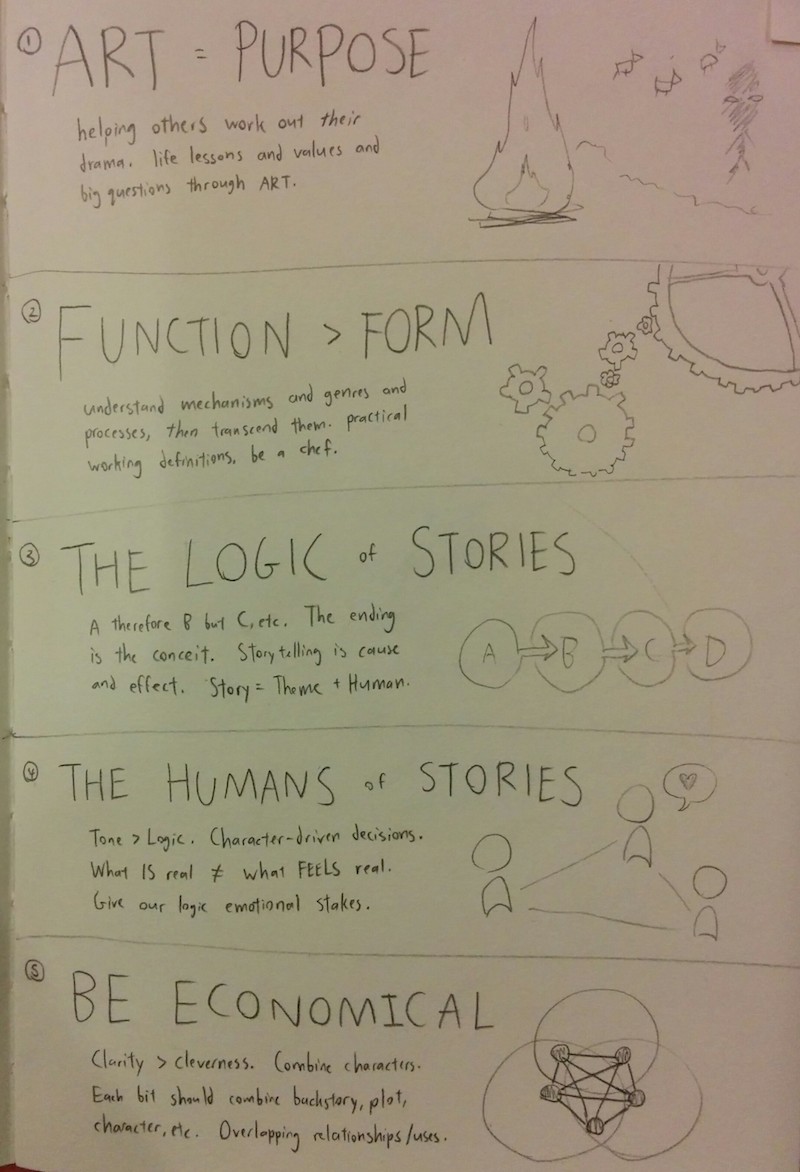 ① ART = PURPOSE
helping others work out their
drama. life lessons and values and
big questions through ART.
② FUNCTION > FORM
understand mechanisms and genres and
processes, then transcend them. practical
working definitions. be a chef.
③ THE LOGIC of STORIES
A therefore B but C, etc. The ending
is the conceit. Storytelling is cause
and effect. Story = Theme + Human.
A B C D
④ THE HUMANS of STORIES
Tone > Logic. Character-driven decisions.
What IS real ≠ what FEELS real.
Give our logic emotional stakes.
⑤ BE ECONOMICAL
Clarity > cleverness. Combine characters.
Each bit should combine backstory, plot,
character, etc. Overlapping relationships/uses.